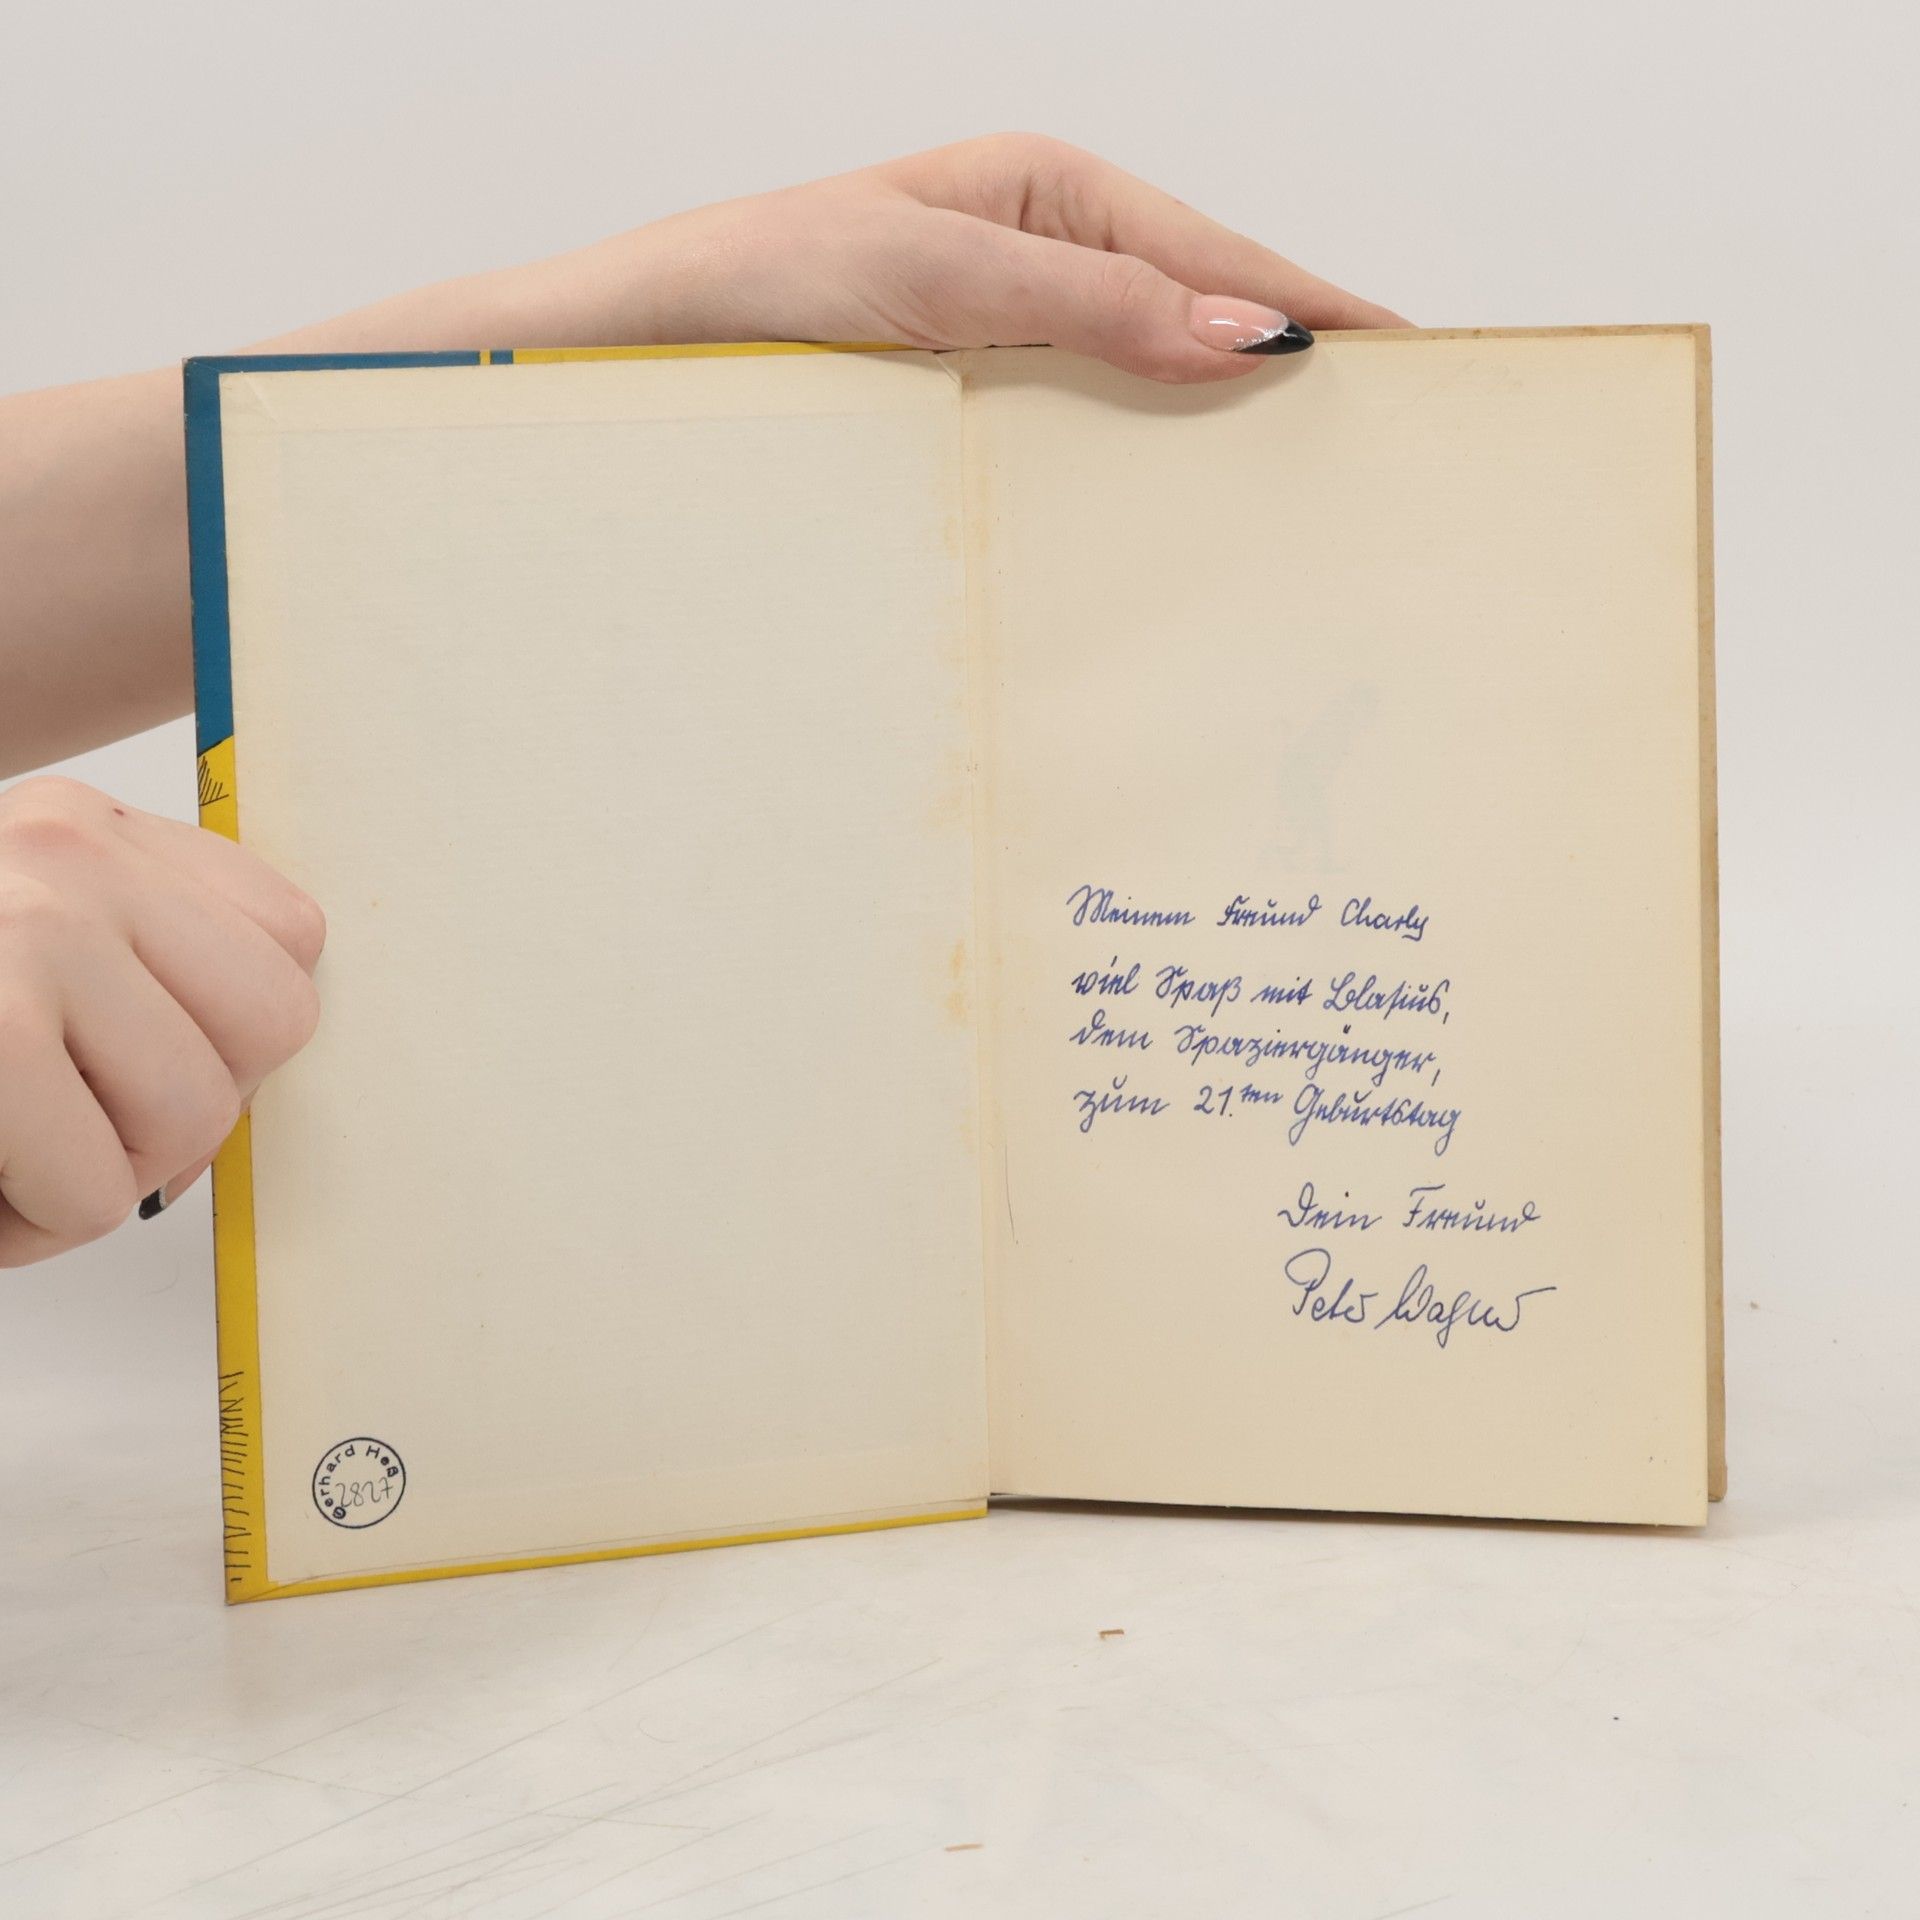 Gerhard Heß
2827
Meinem Freund Charly
viel Spaß mit Blasius,
dem Spaziergänger,
zum 21.ten Geburtstag
Dein Freund
Peter Wagner